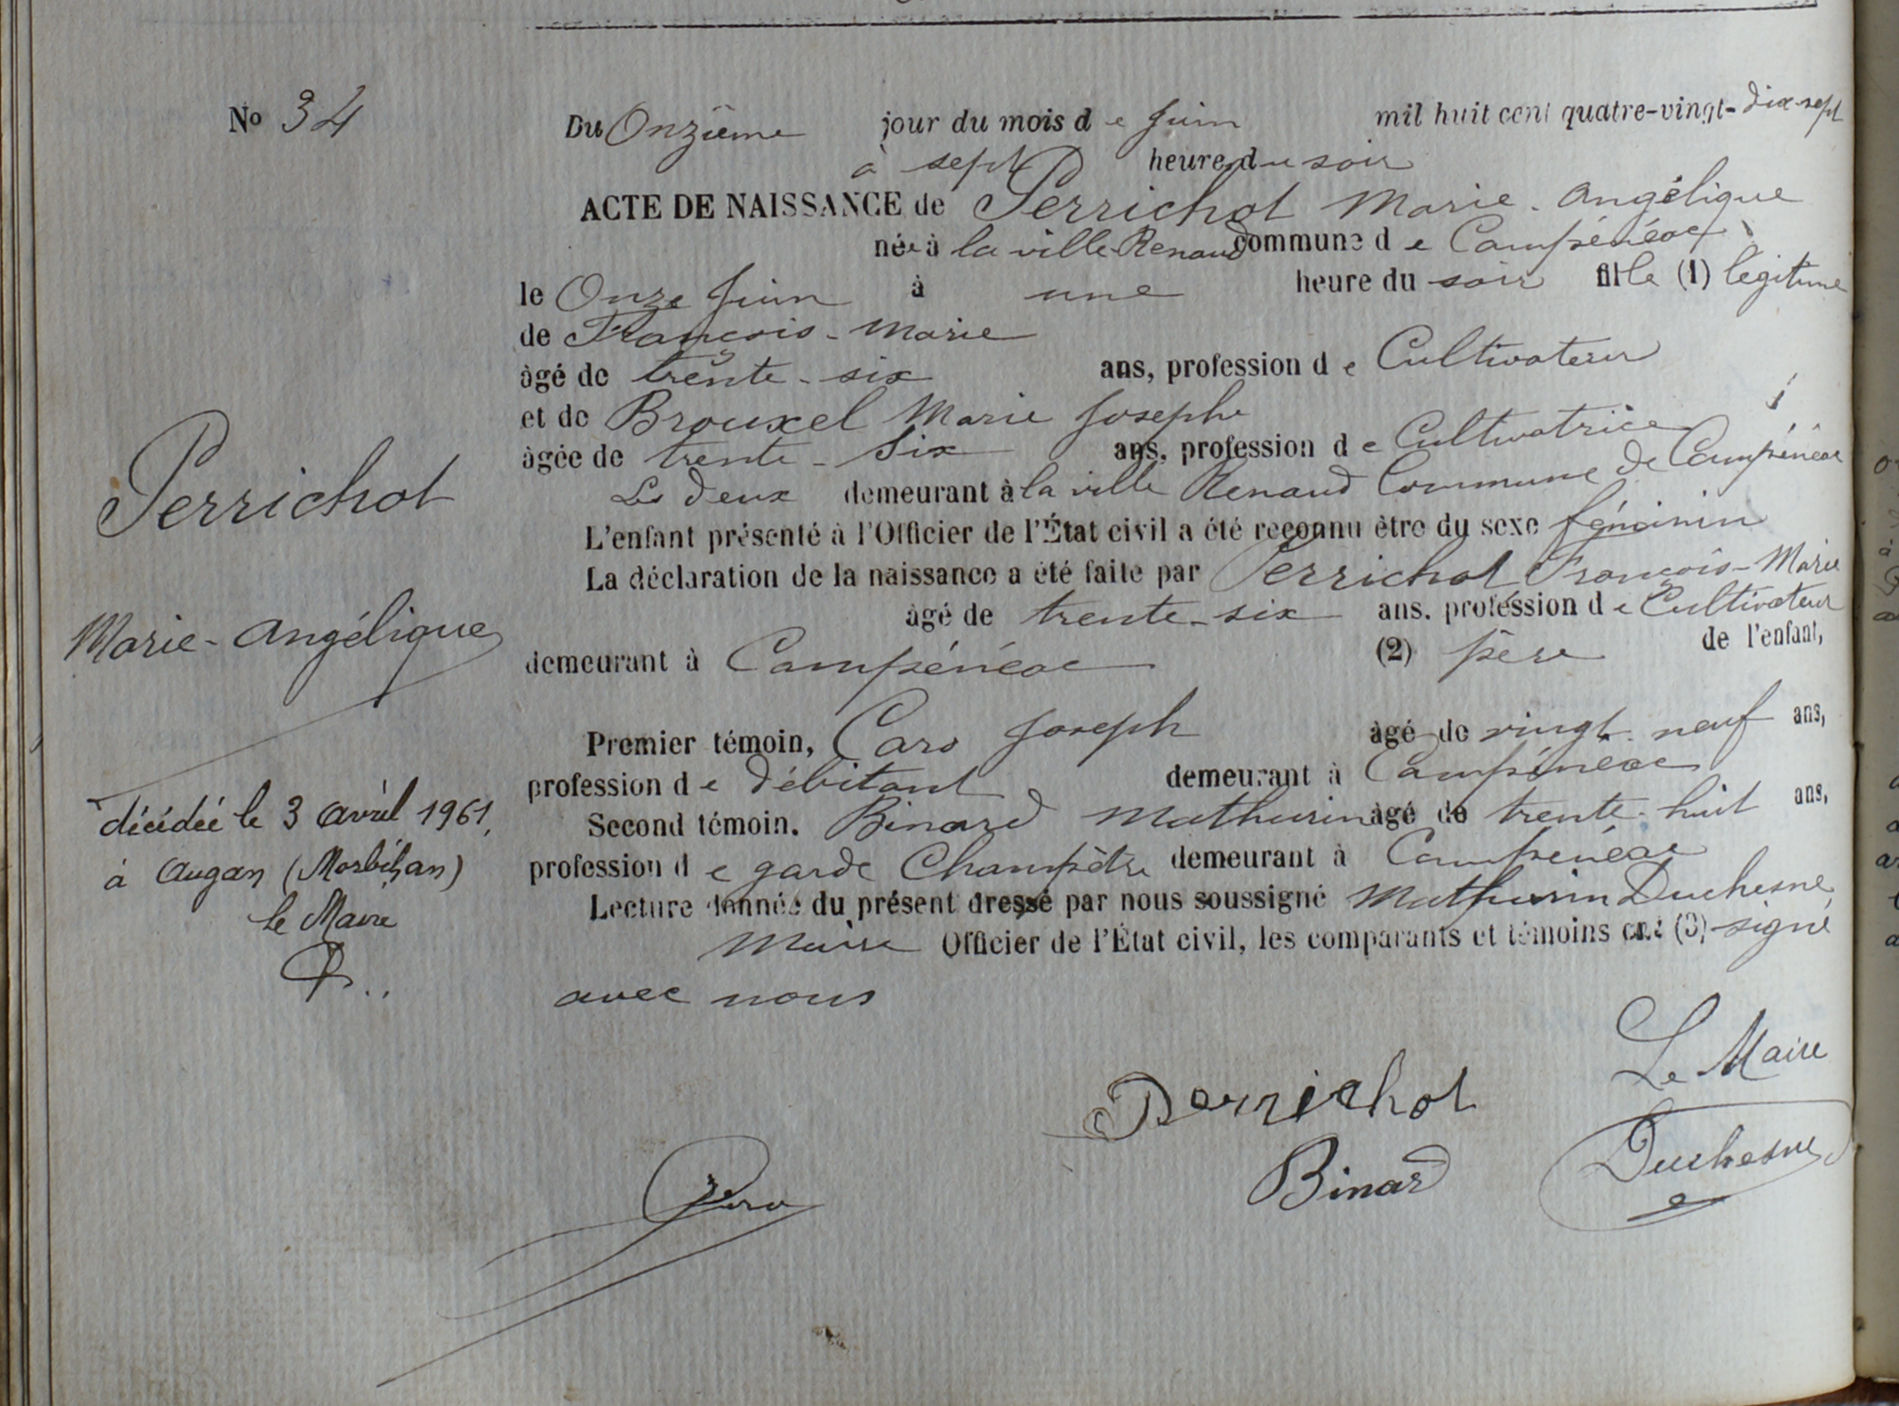 No 34
Du Onzième jour du mois de Juin mil huit cent quatre-vingt-dix-sept
à sept heure du soir
ACTE DE NAISSANCE de Perrichot Marie-Angélique
née à la ville Renaud commune de Campénéac
le Onze Juin à une heure du soir fille (1) légitime
de François-Marie
âgé de trente-six ans, profession de Cultivateur
et de Brouxel Marie Josephe
âgée de trente-Six ans, profession de Cultivatrice
Les deux demeurant à la ville Renaud Commune de Campénéac
L'enfant présenté à l'Officier de l'État civil a été reconnu être du sexe féminin
La déclaration de la naissance a été faite par Perrichot François-Marie
âgé de trente-six ans. profession de Cultivateur
demeurant à Campénéac (2) père de l'enfant,
Premier témoin, Caro Joseph âgé de vingt-neuf ans,
profession de débitant demeurant à Campénéac
Second témoin. Binard Mathurin âgé de trente-huit ans,
profession de garde Champêtre demeurant à Campénéac
Lecture donnée du présent dressé par nous soussigné Mathurin Duchesne
Maire Officier de l'État civil, les comparants et témoins ont (3) signé
avec nous
Perrichot
Marie-Angélique
décédée le 3 avril 1961,
à Augan (Morbihan)
le Maire
Le Maire
Perrichot
Duchesne
Binard
Caro